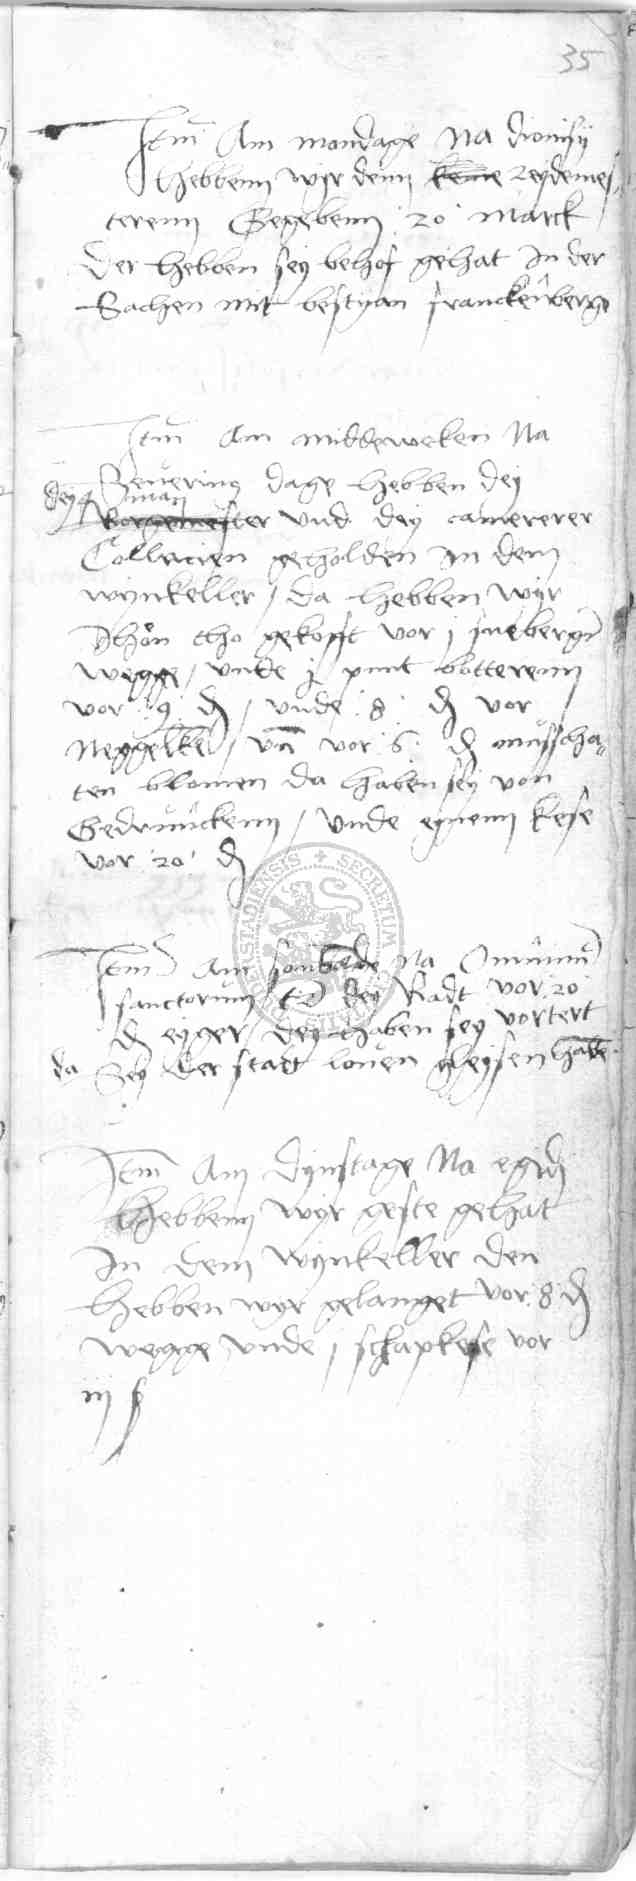 35
Item Am mandage Na dionisij
Hebbenn wyr denn keme Reydemes,,
terenn Gegebenn 20 Marck
der hebben sey behof gehat In der
Sachen mit bestyan franckenberge
Item Am middeweken Na
Severinus dage hebben dey
dey 4 man
Borgemester vnd dey camererer
Collacien geholden In dem
wynkeller / da hebben wyr
Thon tho gekofft vor j
wegge / vnde j punt botterenn
vor 9 d / vnde 8 d vor
Neggelke / vn vor 6 d musscha,,
ten blomen da haben sey von
Gedrunckenn / Vnde eynem kese
vor 20 d
Item Am sonbende Na Omnium
sanctorum dey Radt vor 20
d eyger / dey haben sey vortert
da Sey der statt haben
Item Am dynstage Na egidij
Hebbenn wyr geste gehat
In dem Wynkeller den
Hebben wyr gelanget vor 8 d
wegge vnde j schapkese vor
iij ß
SECRETUM